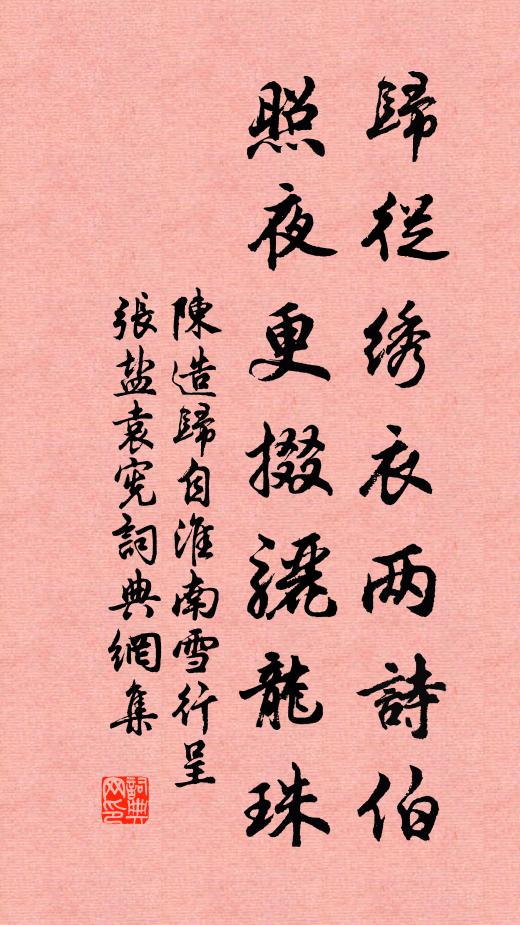 歸從绣衣两詩伯
照夜更掇驪龍珠
陳造歸自淮南雪行呈
張盐袁宪詞典網集
詞典网印